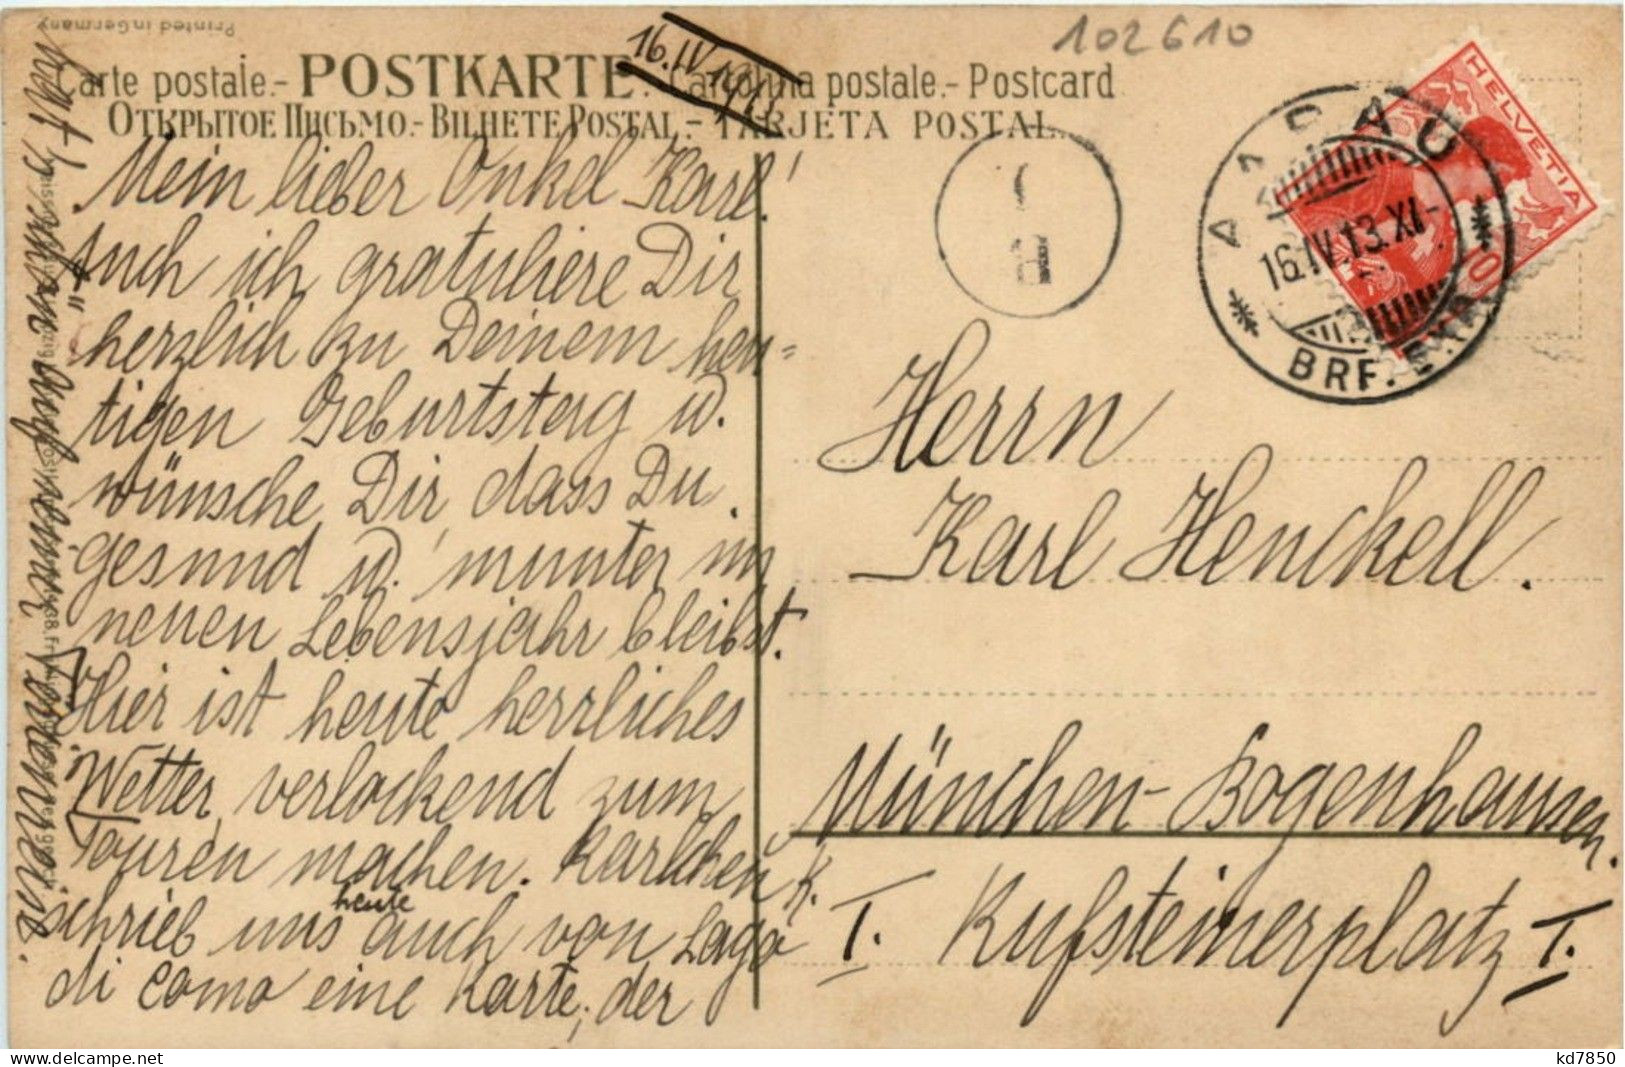 Printed in Germany
16. IV
102610
Carte postale.- POSTKARTE. Cartolina postale.- Postcard
Открытое Письмо.- Bilhete Postal.- Tarjeta Postal.
Mein lieber Onkel Karl!
Auch ich gratuliere Dir
herzlich zu Deinem heu=
tigen Geburtstag u.
wünsche Dir, dass Du
gesund u. munter im
neuen Lebensjahr bleibst.
Hier ist heute herrliches
Wetter, verlockend zum
Touren machen. Karlchen K.
schrieb uns heute auch von Lago
di Como eine Karte, der
HELVETIA
10
AARAU
16.IV.13.XI-
BRF.
Herrn
Karl Henckell.
München-Bogenhausen.
I. Kufsteinerplatz I.